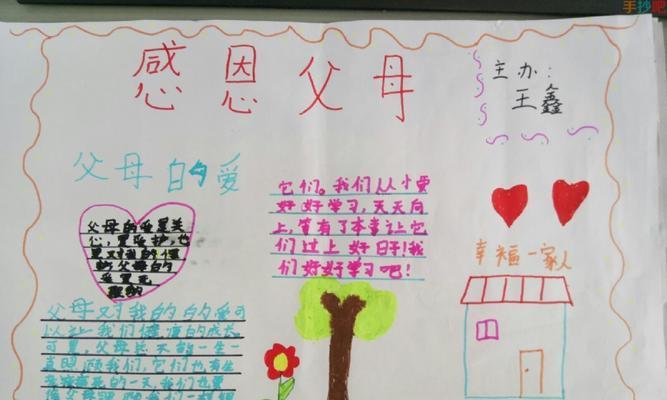 手抄吧
感恩父母
主办:
王鑫
父母的爱
父母的爱是关
心,是爱护,也
是对我的
的父母的
爱是无
它们。我们从小要
好好学习,天天向
上,等有了本事让它
们过上好日子!我
们好好学习吧!
幸福一家人
父母对我的的爱可
以让我们健康的成长
可是,父母不的能一生一
直照顾我们,它们也有生
的一天,我们也要